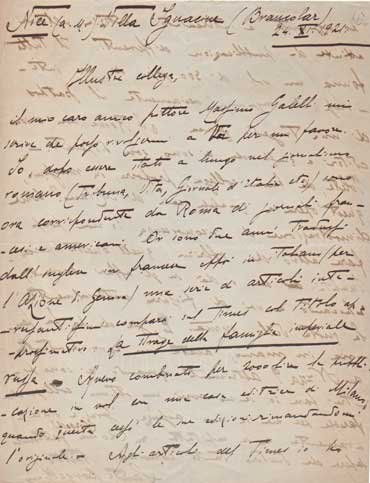 Nice (a. m.) Villa Ignacine (Brancolar)
24. XI. 1921
Illustre collega,
il mio caro amico pittore Massimo Galelli mi
scrive che posso rivolgermi a Voi per un favore.
Io dopo essere stato a lungo nel giornalismo
romano (Tribuna, Vita, Giornale d'Italia etc) sono
ora corrispondente da Roma di giornali fran-
cesi e americani. Or sono due anni tradussi
dall'inglese in francese e poi in italiano per
l'Azione di Genova) una serie di articoli inte-
ressantissimi comparsi sul Times col titolo ap-
prossimativo La strage della famiglia imperiale
russa. Avevo combinato per 2000 lire la pubbli-
cazione in vol. con una casa editrice di Milano,
quando questa cessò le sue edizioni rimandandomi
l'originale. Agli articoli del Times io ho